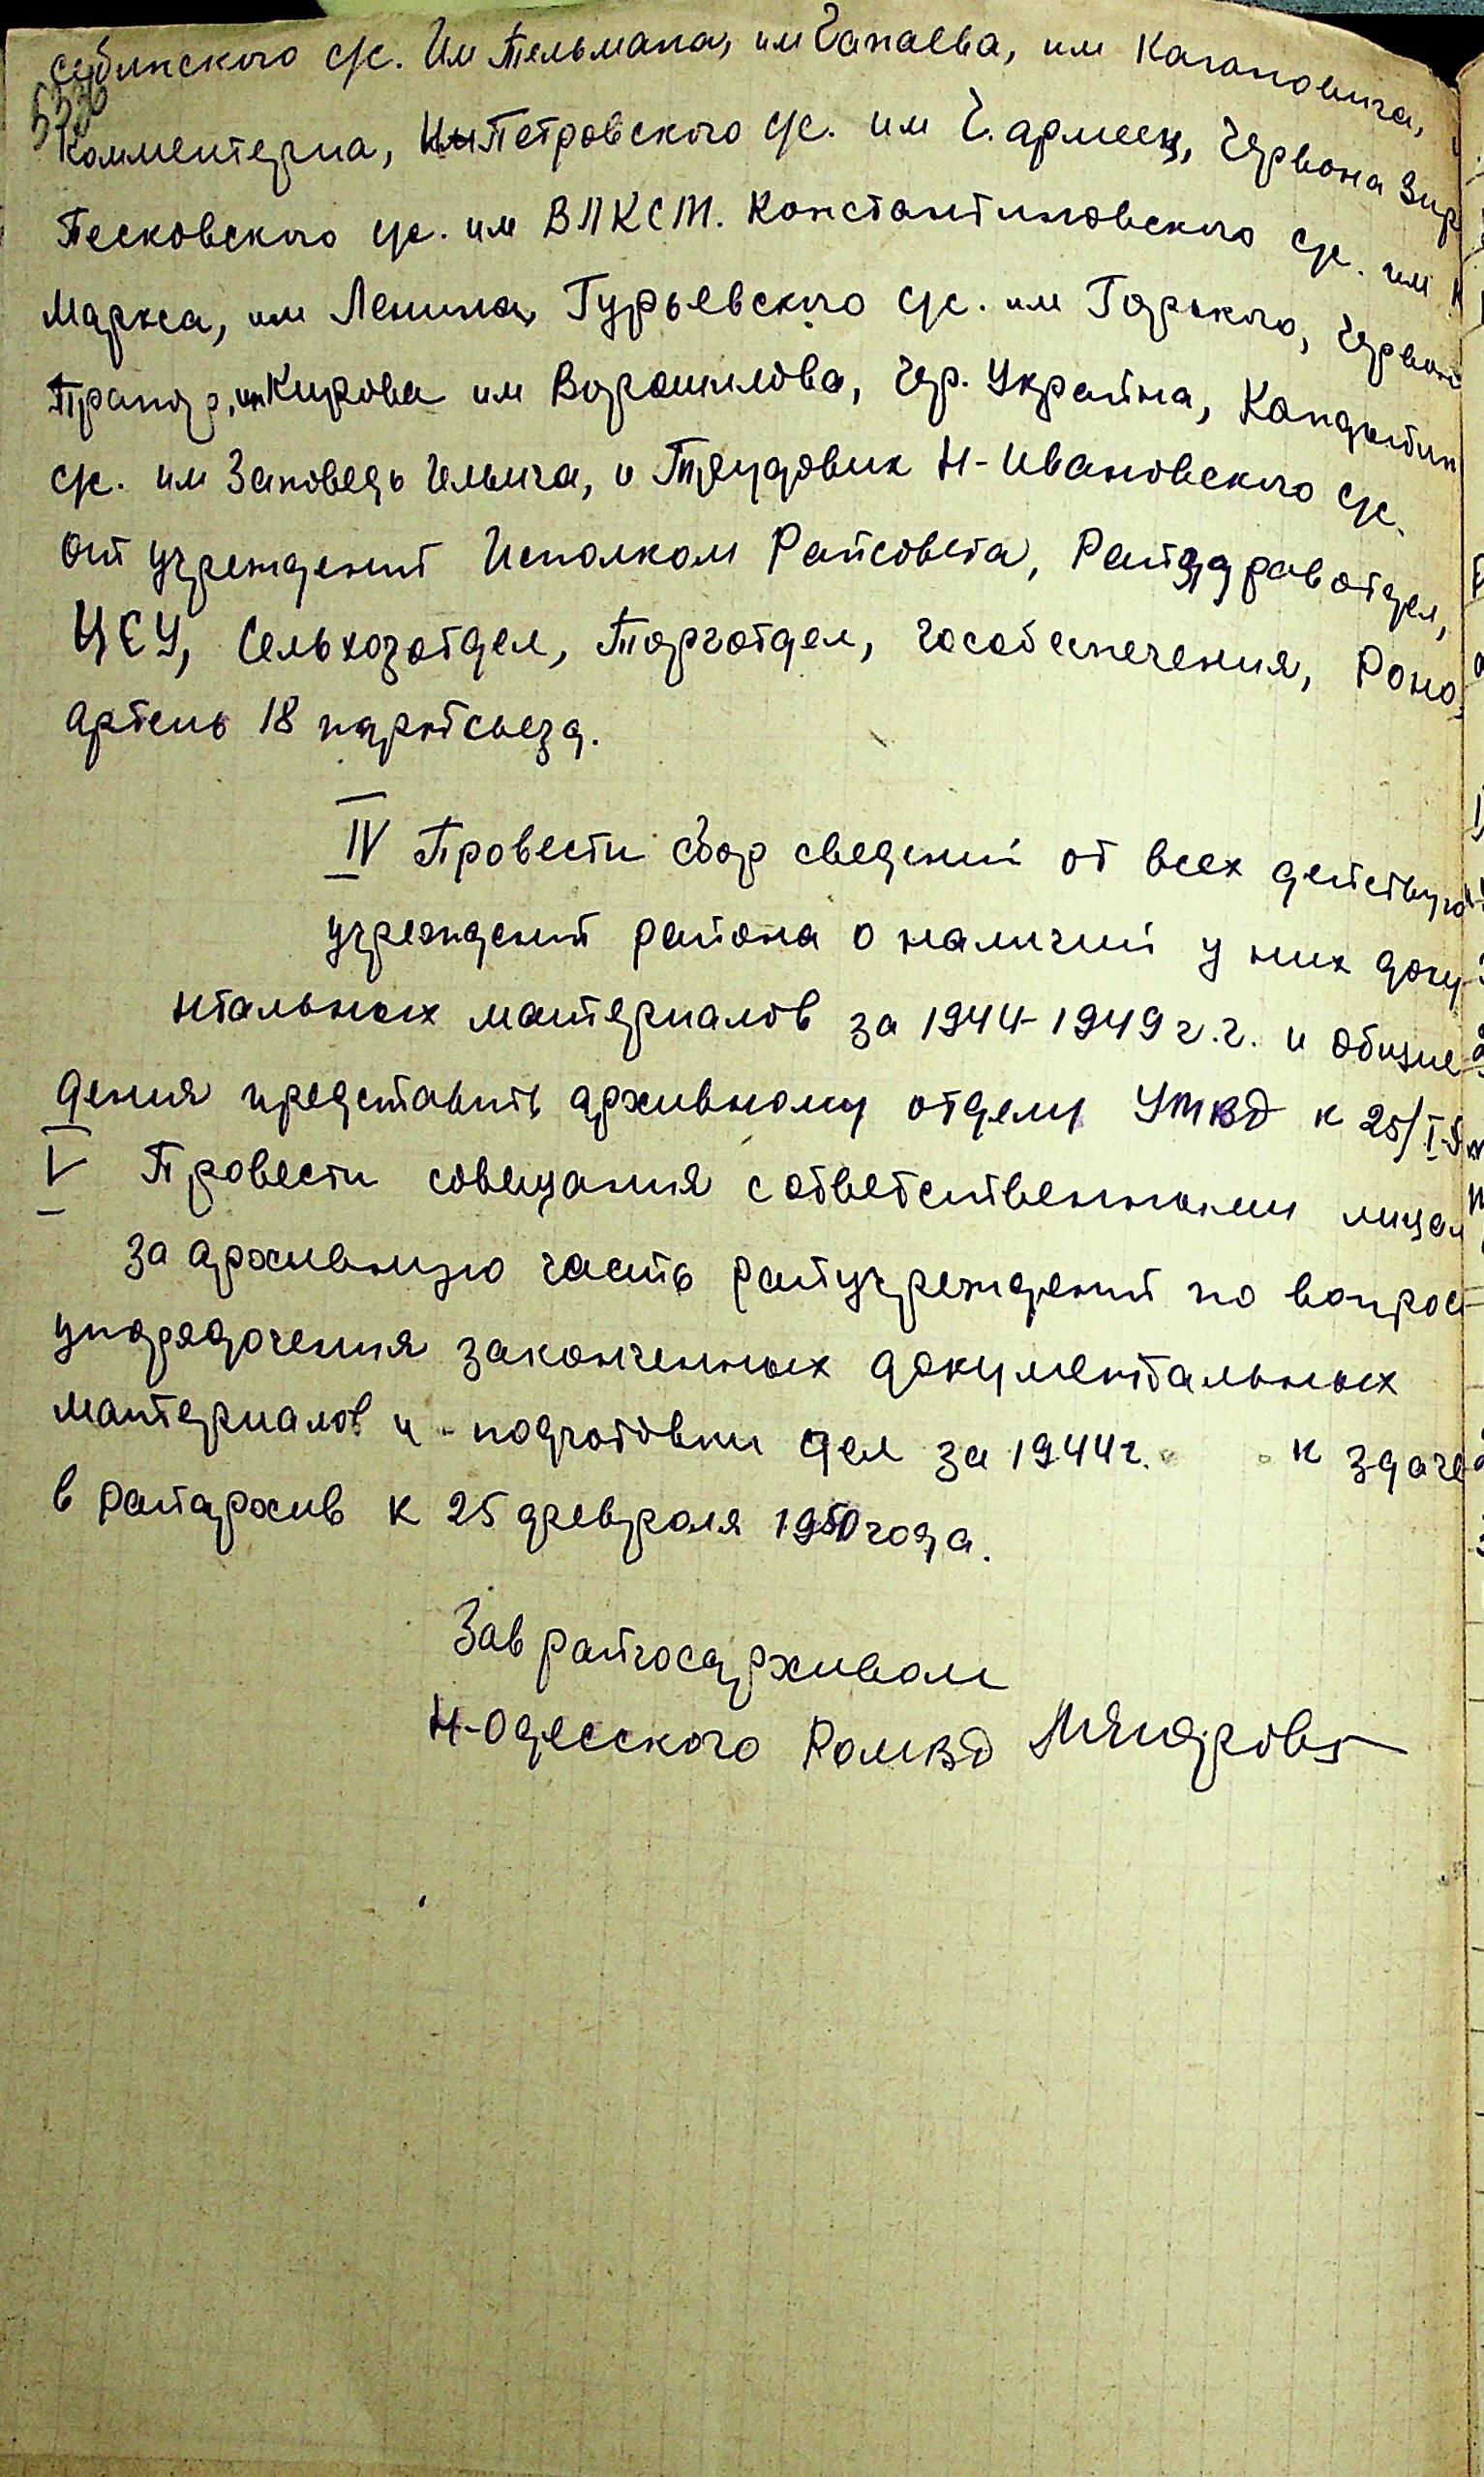 себинского с/с. Им Тельмана, им Чапаева, им Кагановича,
Комментерна, Им Петровского с/с. им Ч. армеец, Червона Зир
Песковского с/с. им ВЛКСМ. Константиновского с/с. им К
Маркса, им Ленина, Гурьевского с/с. им Горького, Червон
Прапор, им Кирова им Ворошилова, Чер. Украйна, Кандыбин
с/с. им Заповедь Ильича, и Трудовик Н-Ивановского с/с.
от учреждений Исполком Райсовета, Райздравотдел,
ЦСУ, Сельхозотдел, Торготдел, Гособеспечения, Роно,
артель 18 партсьезд.
IV Провести сбор сведений от всех действую
учреждений района о наличий у них доку
нтальных материалов за 1944-1949 г.г. и общие
дения представить архивному отделу УМВД к 25/I-5
V Провести совещания с ответственными лицам
за архивную часть райучреждений по вопрос
упорядочения законченных документальных
материалов и подготовки дел за 1944г. к здаче
в райархив к 25 февраля 1950 года.
Зав райгосархивом
Н-Одесского РОМВД